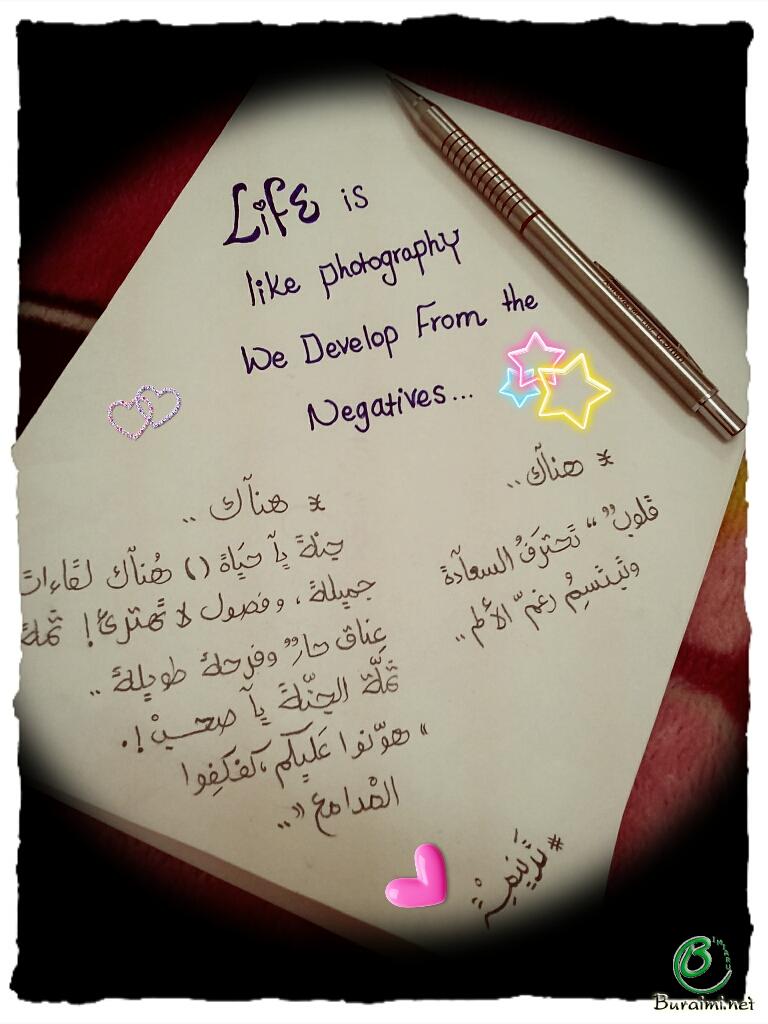 Life is
like photography
We Develop From the
Negatives...
* هنآك ..
قلوبٌ “ تَحترَفُ السعآدة
وتَبتسِمُ رغم الألم ..
* هنآك ..
جنّة يآ حيَاة () هُنآك لقَاءات
جميلة ، وفصول لا تهترئ ! ثمّة
عِناق حارٌ وفرحة طويلة ..
ثمَّة الجنّة يآ صحبْ !.
" هوّنوا عَليكم ، كفكِفوا
المْدامع " ..
Buraimi.net